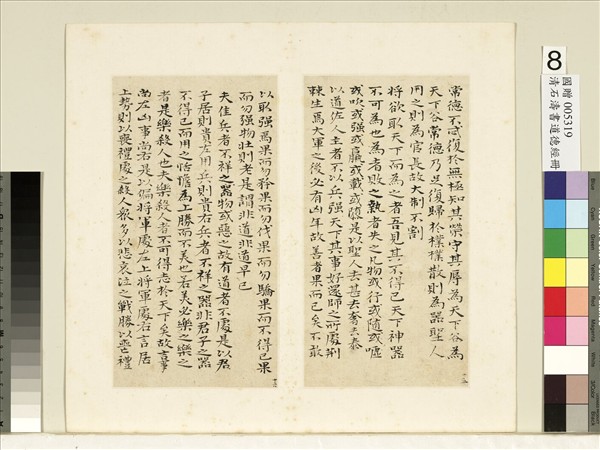 8
國贈 005319
清石濤書道德經冊
常德不忒復於無極知其榮守其辱為天下谷為
天下谷常德乃足復歸於樸樸散則為器聖人
用之則為官長故大制不割
將欲取天下而為之者吾見其不得已天下神器
不可為也為者敗之執者失之凡物或行或隨或噓
或吹或强或羸或載或隳是以聖人去甚去奢去泰
以道佐人主者不以兵强天下其事好還師之所處荆
棘生焉大軍之後必有凶年故善者果而已矣不敢
以取强焉果而勿矜果而勿伐果而勿驕果而不得已果
而勿强物壯則老是謂非道非道早已
夫佳兵者不祥之器物或惡之故有道者不處是以君
子居則貴左用兵則貴右兵者不祥之器非君子之器
不得已而用之恬憺為上勝而不美也若美必樂之樂之
者是樂殺人也夫樂殺人者不可得志於天下矣故吉事
尚左凶事尚右是以偏將軍處左上將軍處右言居
上勢則以喪禮處之殺人衆多以悲哀泣之戰勝以喪禮